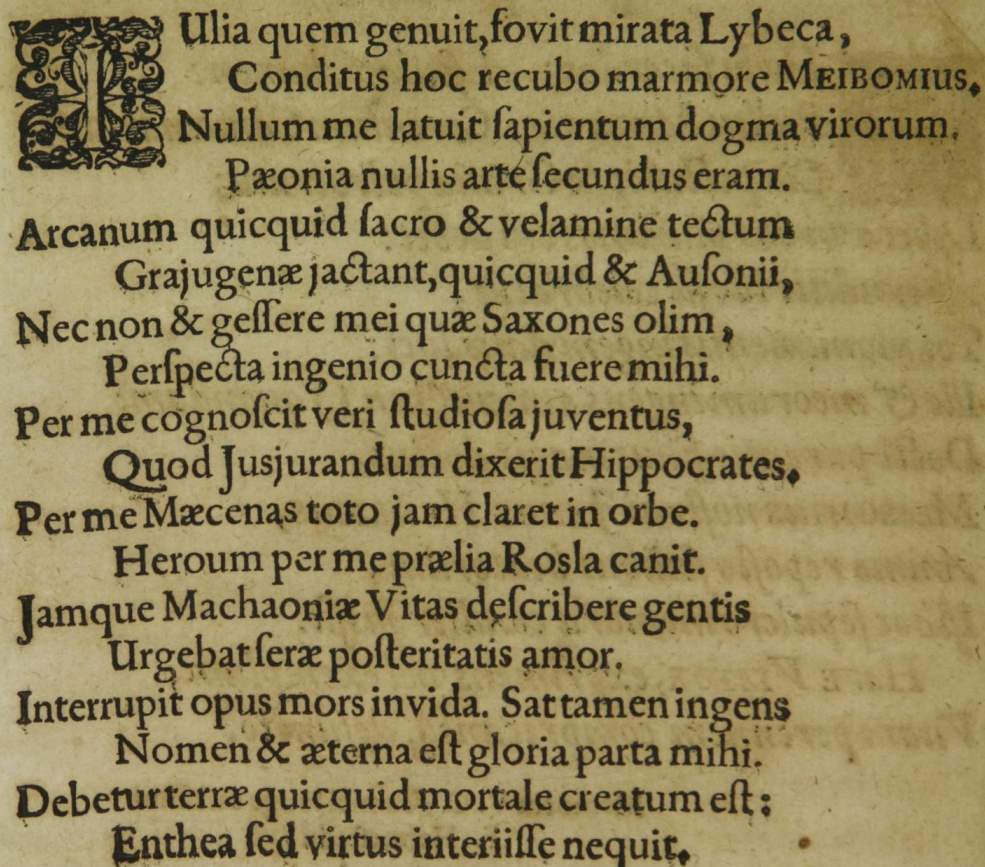 IUlia quem genuit, fovit mirata Lybeca,
Conditus hoc recubo marmore MEIBOMIUS.
Nullum me latuit ſapientum dogma virorum.
Pæonia nullis arte ſecundus eram.
Arcanum quicquid ſacro & velamine tectum
Grajugenæ jactant, quicquid & Auſonii,
Nec non & geſſere mei quæ Saxones olim,
Perſpecta ingenio cuncta fuere mihi.
Per me cognoſcit veri ſtudioſa juventus,
Quod Jusjurandum dixerit Hippocrates.
Per me Mæcenas toto jam claret in orbe.
Heroum per me prælia Rosla canit.
Jamque Machaoniæ Vitas deſcribere gentis
Urgebat ſeræ poſteritatis amor.
Interrupit opus mors invida. Sat tamen ingens
Nomen & æterna eſt gloria parta mihi.
Debetur terræ quicquid mortale creatum eſt:
Enthea ſed virtus interiiſſe nequit.